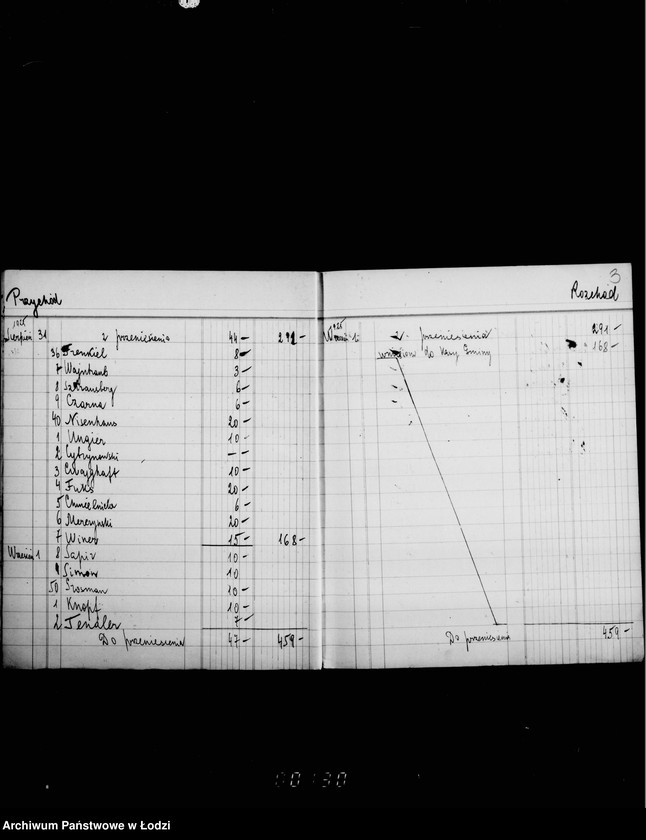 3
Przychód
Sierpień 31 z przeniesienia 44 — 291 —
36 Frenkiel 8 —
7 Wajnhaus 3 —
8 Sztransberg 6 —
9 Czarna 6 —
40 Nisenhaus 20 —
1 Ungier 10 —
2 Cytrynowski — —
3 Cwajghaft 10 —
4 Fuks 20 —
5 Chmielnicka 6 —
6 Moszyński 20 —
7 Winer 15 — 168 —
Wrzesień 1 8 Sapir 10 —
9 Simon 10
50 Szosman 10 —
1 Knopf 10 —
2 Tendler 7 —
Do przeniesienia 47 — 459 —
Rozchód
Wrzesień 1 z przeniesienia 291 —
do Kasy Gminy 168 —
Do przeniesienia 459 —
00130
Archiwum Państwowe w Łodzi